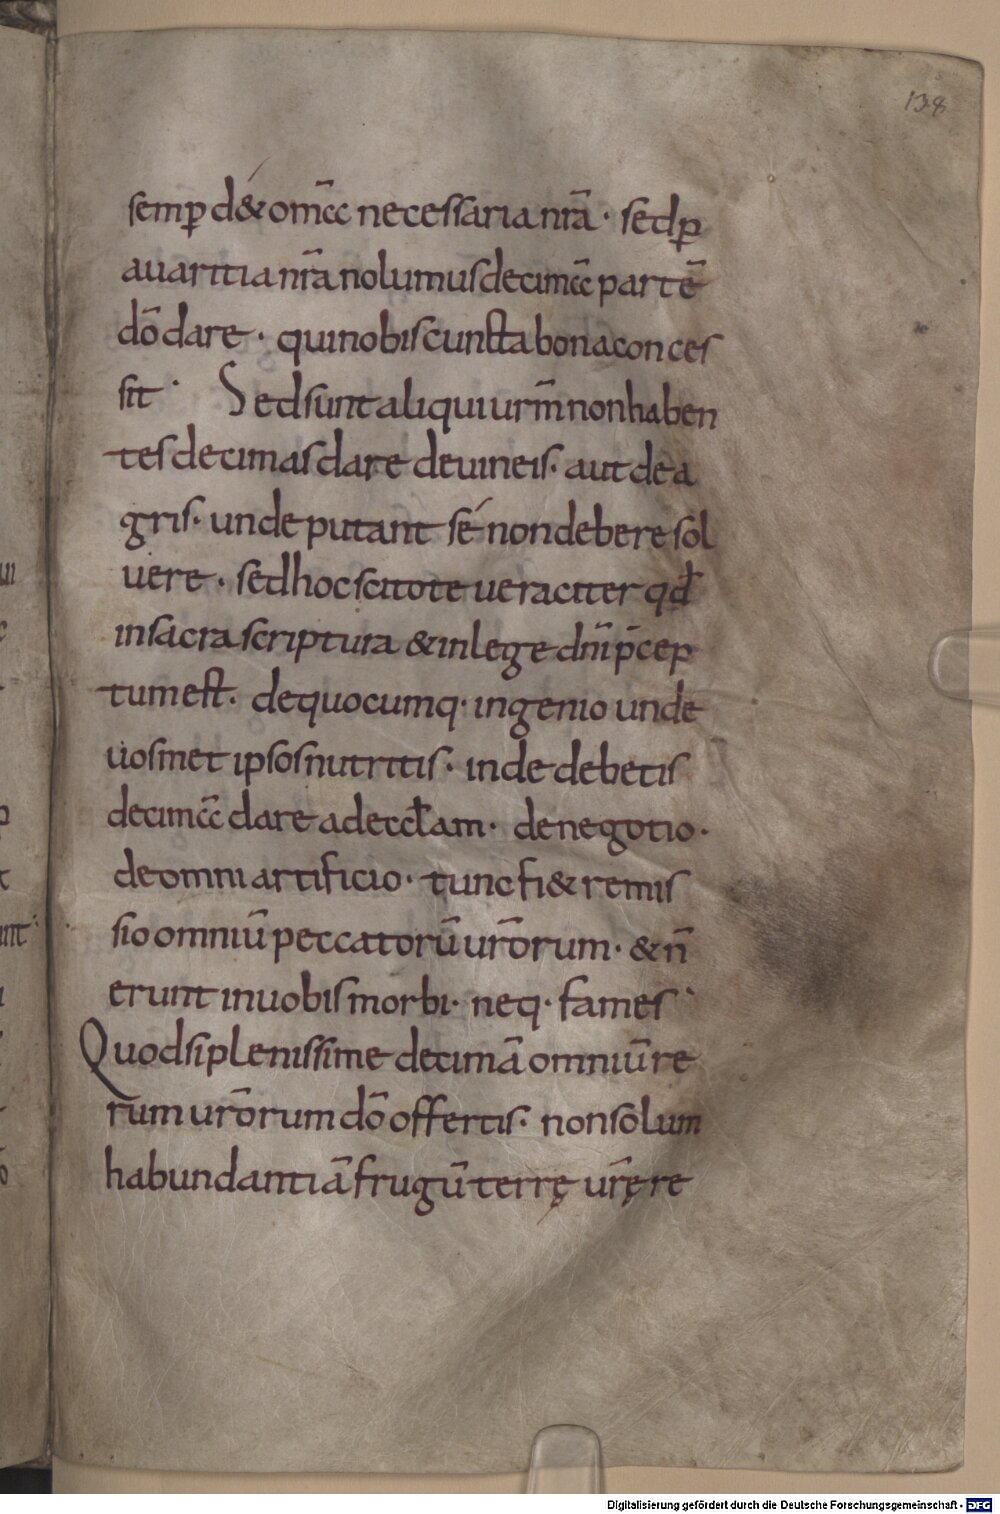 138
semp̱ d& om̄cc necessaria nr̄a · sed p̱
auaritia nr̄a nolumus decimcc̄ partē
dō dare · qui nobis cuncta bona conces
sit · Sed sunt aliqui urm̄ non haben
tes decimas dare de uineis · aut de a
gris · unde putant sé non debere sol
uere · sed hoc scitote ueraciter qđ
in sacra scriptura & in lege dnī p̄cep
tum est · de quocumq· ingenio unde
uosmet ipsos nutritis · inde debetis
decimcc̄ dare ad eccłam · de negotio ·
de omni artificio · tunc fi& remis
sio omniū peccatorū urōrum · & n̄
erunt in uobis morbi · neq· fames ·
Quod si plenissime decimā omniū re
rum urōrum dō offertis · non solum
habundantiā frugū terrę ur̄ę re
Digitalisierung gefördert durch die Deutsche Forschungsgemeinschaft - DFG